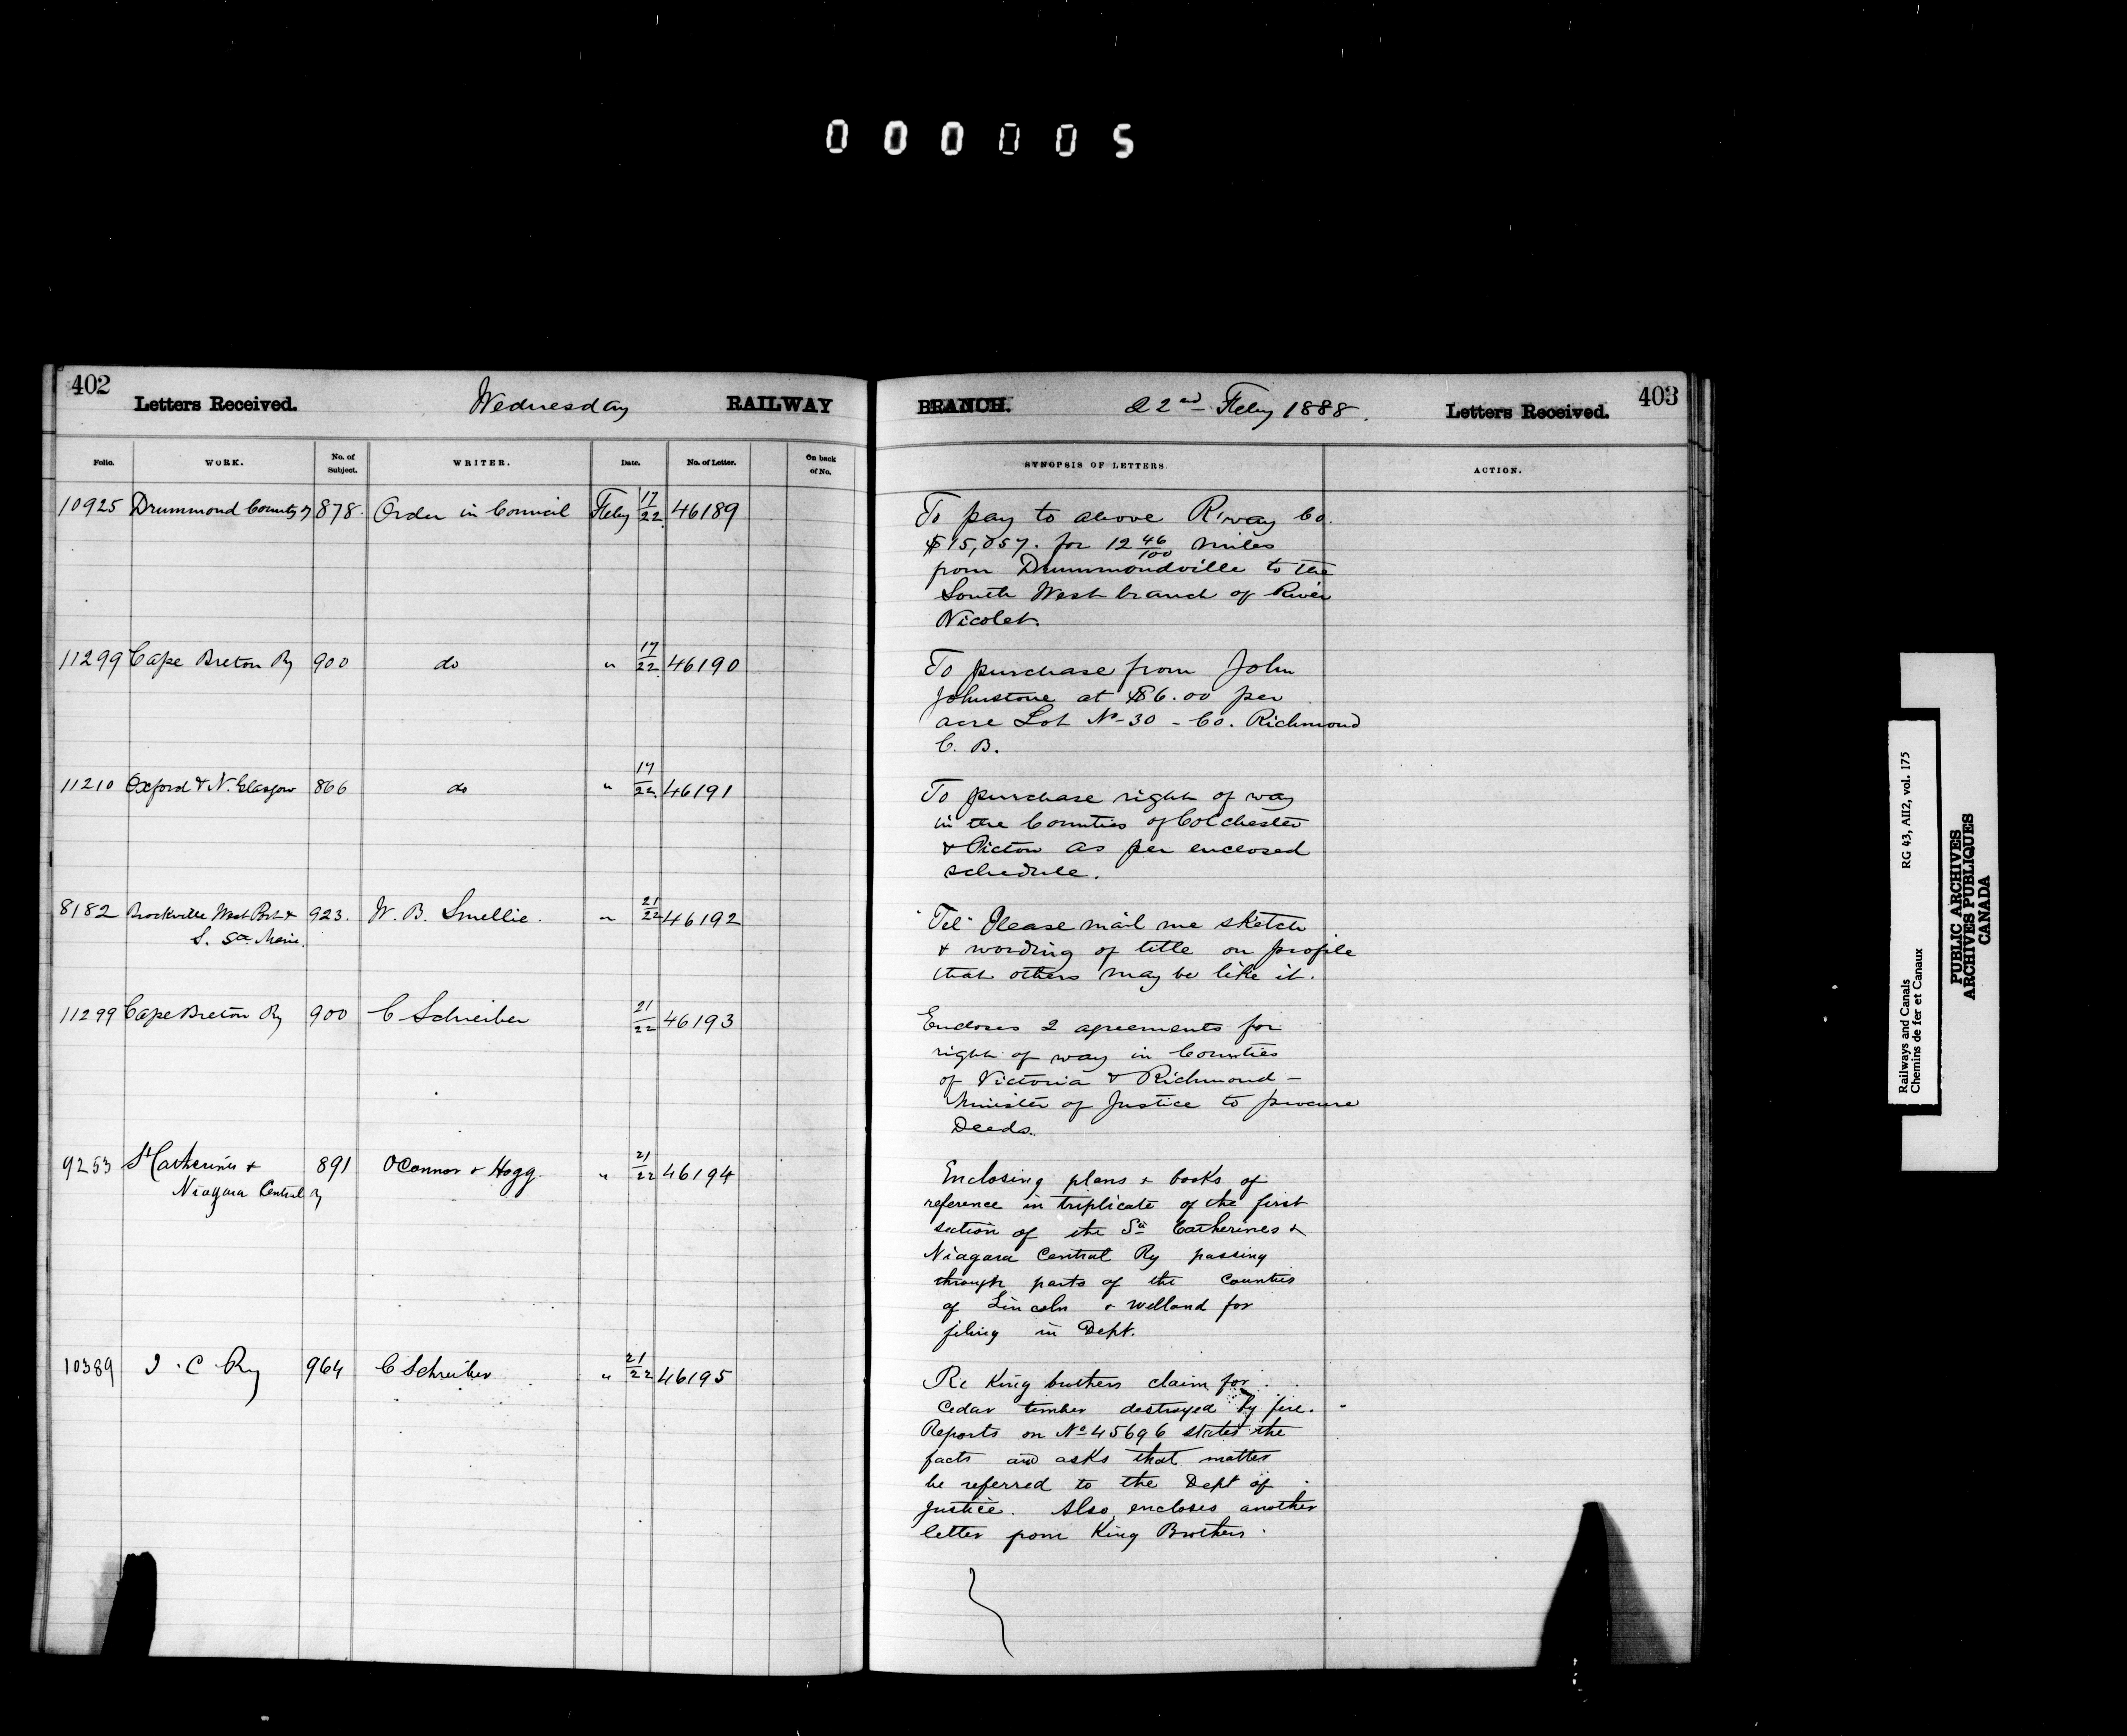 000005
402
Letters Received.
Wednesday
RAILWAY
BRANCH.
22nd Feby 1888.
Letters Received.
403
Folio. WORK. No. of Subject. WRITER. Date. No. of Letter. On back of No.
SYNOPSIS OF LETTERS. ACTION.
10925 Drummond County Ry 878. Order in Council Feby 17/22 46189
To pay to above R'way Co.
$15,057. for 12 46/100 miles
from Drummondville to the
South West branch of River
Nicolet.
11299 Cape Breton Ry 900 do " 17/22 46190
To purchase from John
Johnstone at $6.00 per
acre Lot No 30 - Co. Richmond
C. B.
11210 Oxford & N. Glasgow 866 do " 17/22 46191
To purchase right of way
in the Counties of Colchester
& Pictou as per enclosed
schedule.
8182 Brockville West Port & 923. W. B. Smellie. " 21/22 46192
S. Ste Marie.
"Tel" Please mail me sketch
& wording of title on profile
that others may be like it.
11299 Cape Breton Ry 900 C Schreiber 21/22 46193
Encloses 2 agreements for
right of way in Counties
of Victoria & Richmond -
Minister of Justice to procure
Deeds.
9253 St Catherines & 891 OConnor & Hogg. " 21/22 46194
Niagara Central Ry
Enclosing plans & books of
reference in triplicate of the first
section of the St Catherines &
Niagara Central Ry passing
through parts of the Counties
of Lincoln & Welland for
filing in Dept.
10389 I. C. Ry 964 C Schreiber " 21/22 46195
Re King brothers claim for
Cedar timber destroyed by fire.
Reports on No 45696 states the
facts and asks that matter
be referred to the Dept of
Justice. Also encloses another
letter from King Brothers.
Railways and Canals RG 43, AII2, vol. 175
Chemins de fer et Canaux
PUBLIC ARCHIVES
ARCHIVES PUBLIQUES
CANADA